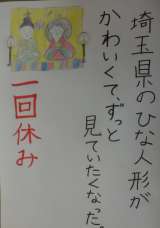 埼玉県のひな人形が
かわいくて、ずっと
見ていたくなった。
一回休み